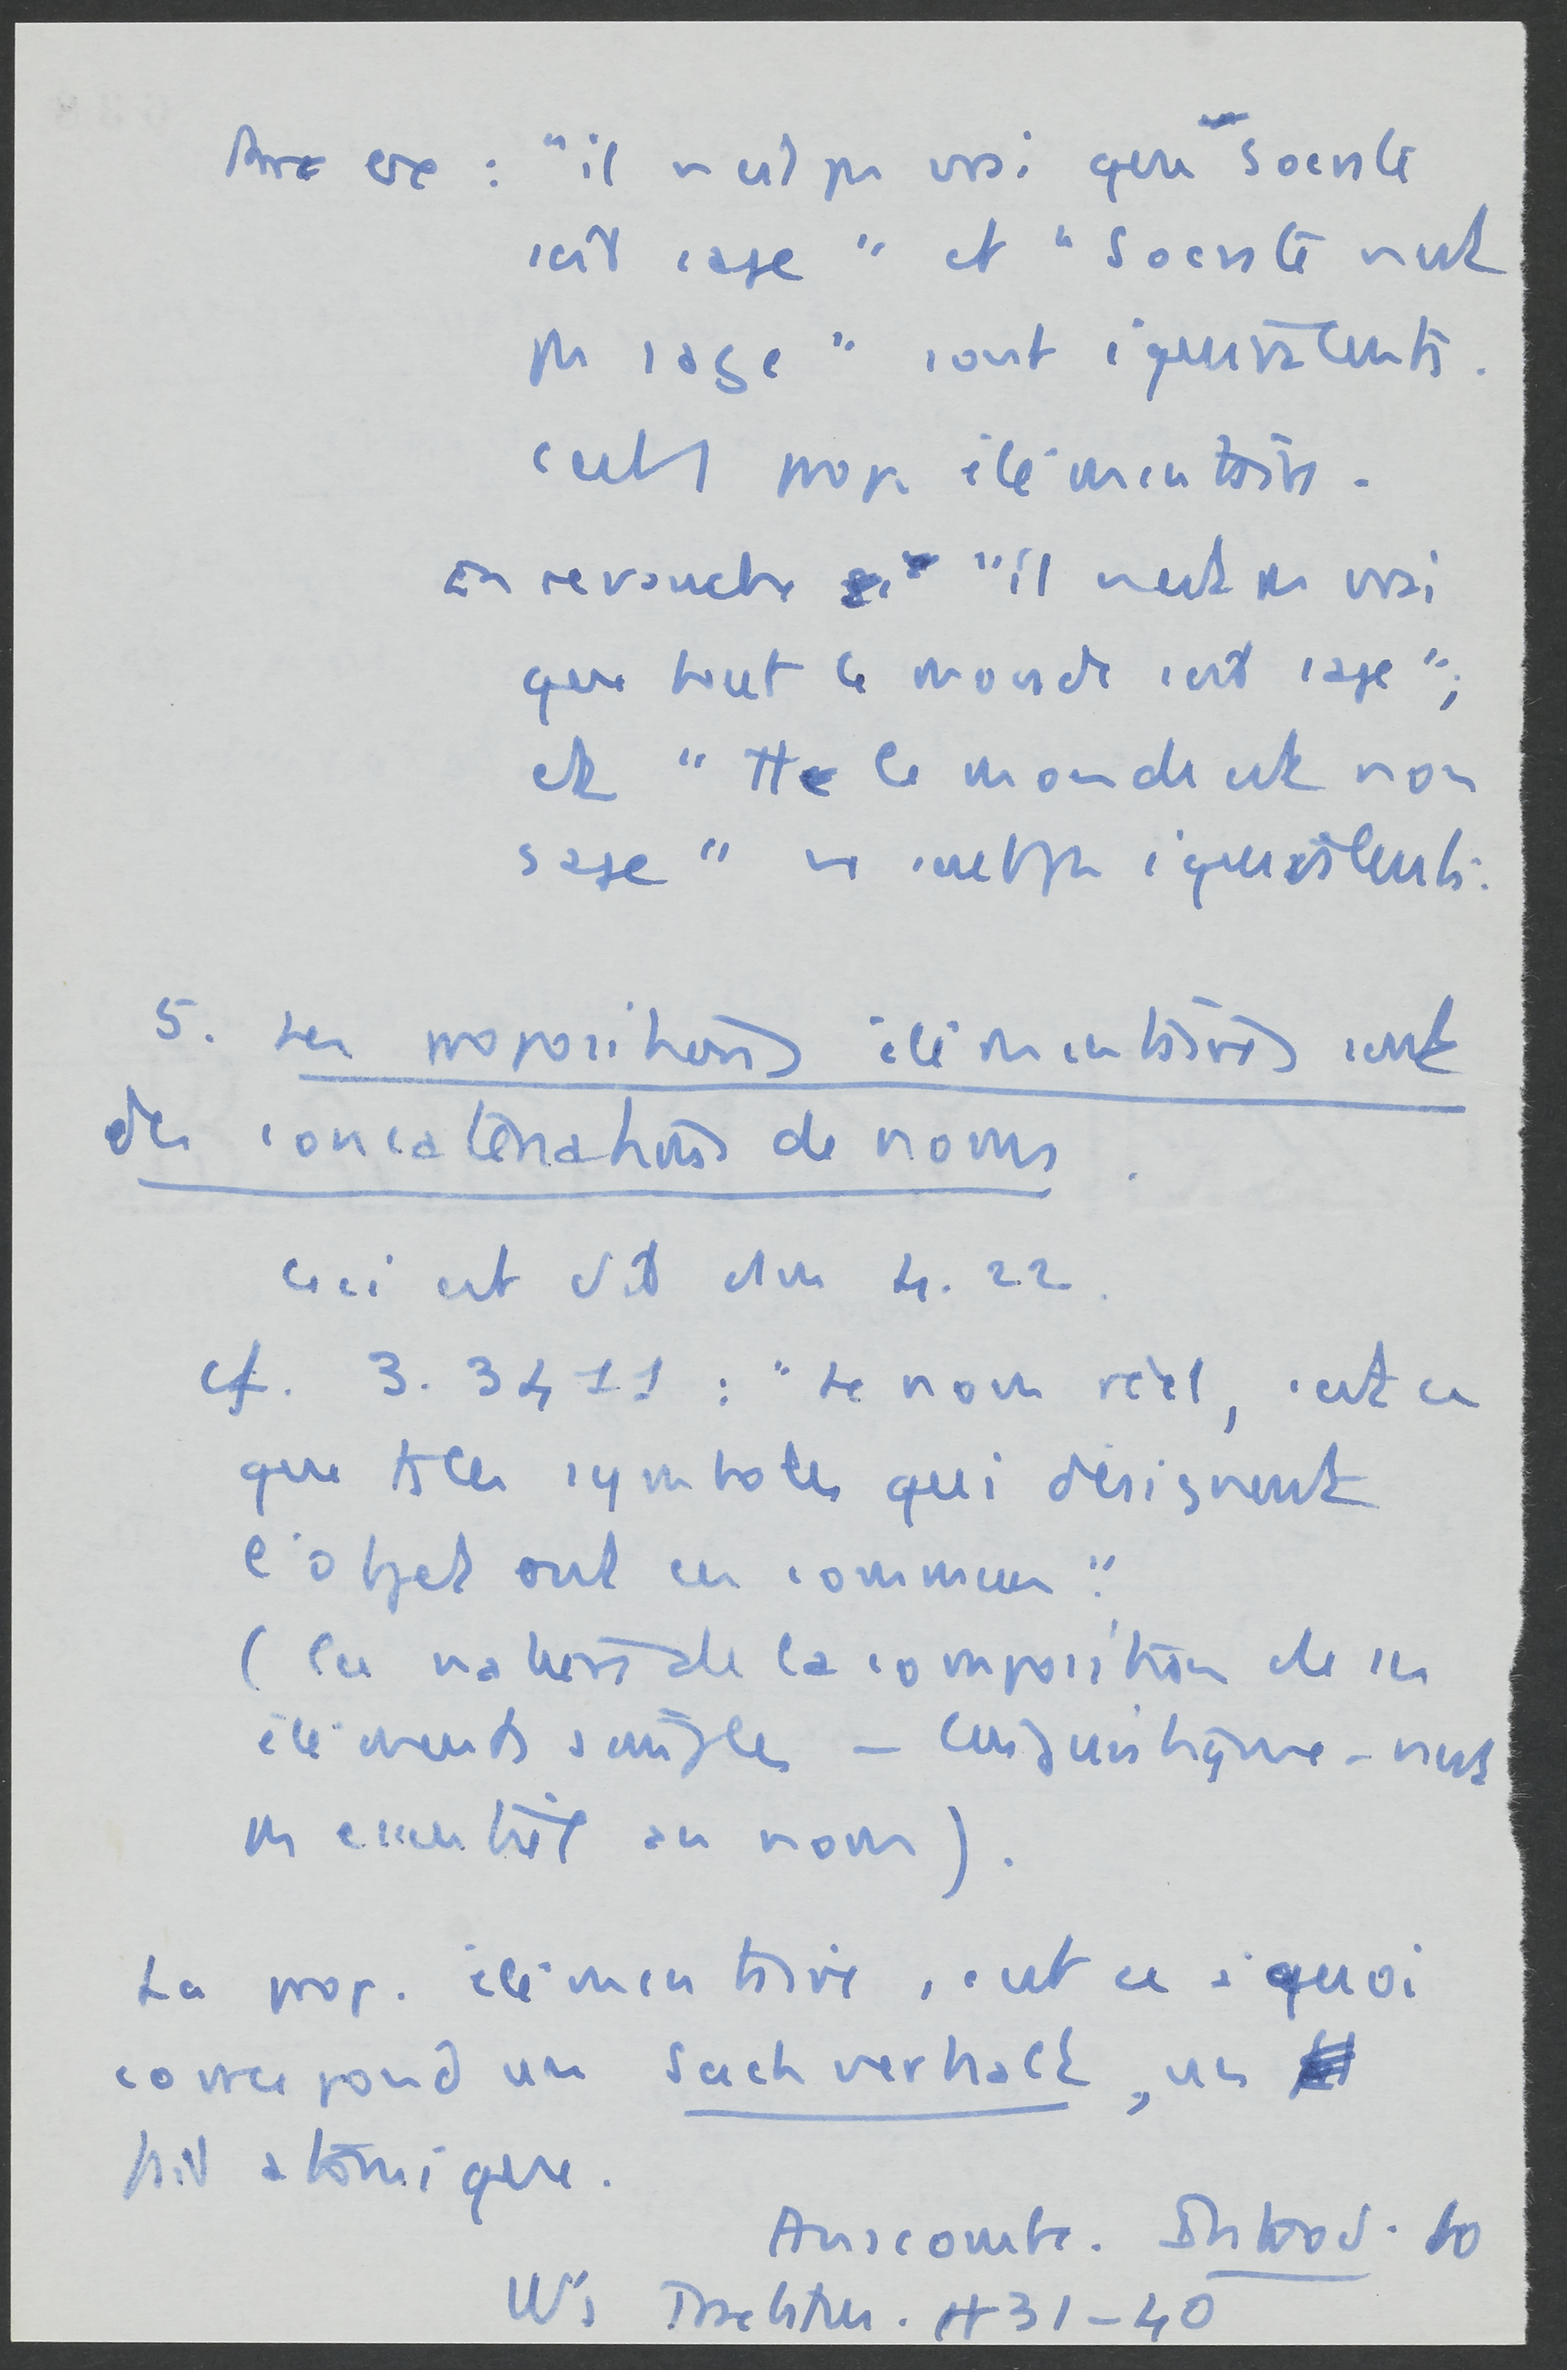 Par ex : "il n'est pas vrai que Socrate
soit sage" et "Socrate n'est
pas sage" sont équivalents.
c'est 1 prop. élémentaire.
en revanche "il n'est pas vrai
que tout le monde soit sage" ;
et "tt le monde est non
sage" ne sont pas équivalents.
5. Les propositions élémentaires sont
des concaténations de noms.
Ceci est dit dans 4.22.
cf. 3.3411 : "Le nom réel, c'est ce
que ts les symboles qui désignent
l'objet ont en commun".
( la composition de ses
éléments simples - linguistique - n'est
pas essentiel au nom).
La prop. élémentaire, c'est ce à quoi
correspond un Sachverhalt, un
fait atomique.
Anscombe. Introd. to
W's Tractatus. pp 31-40